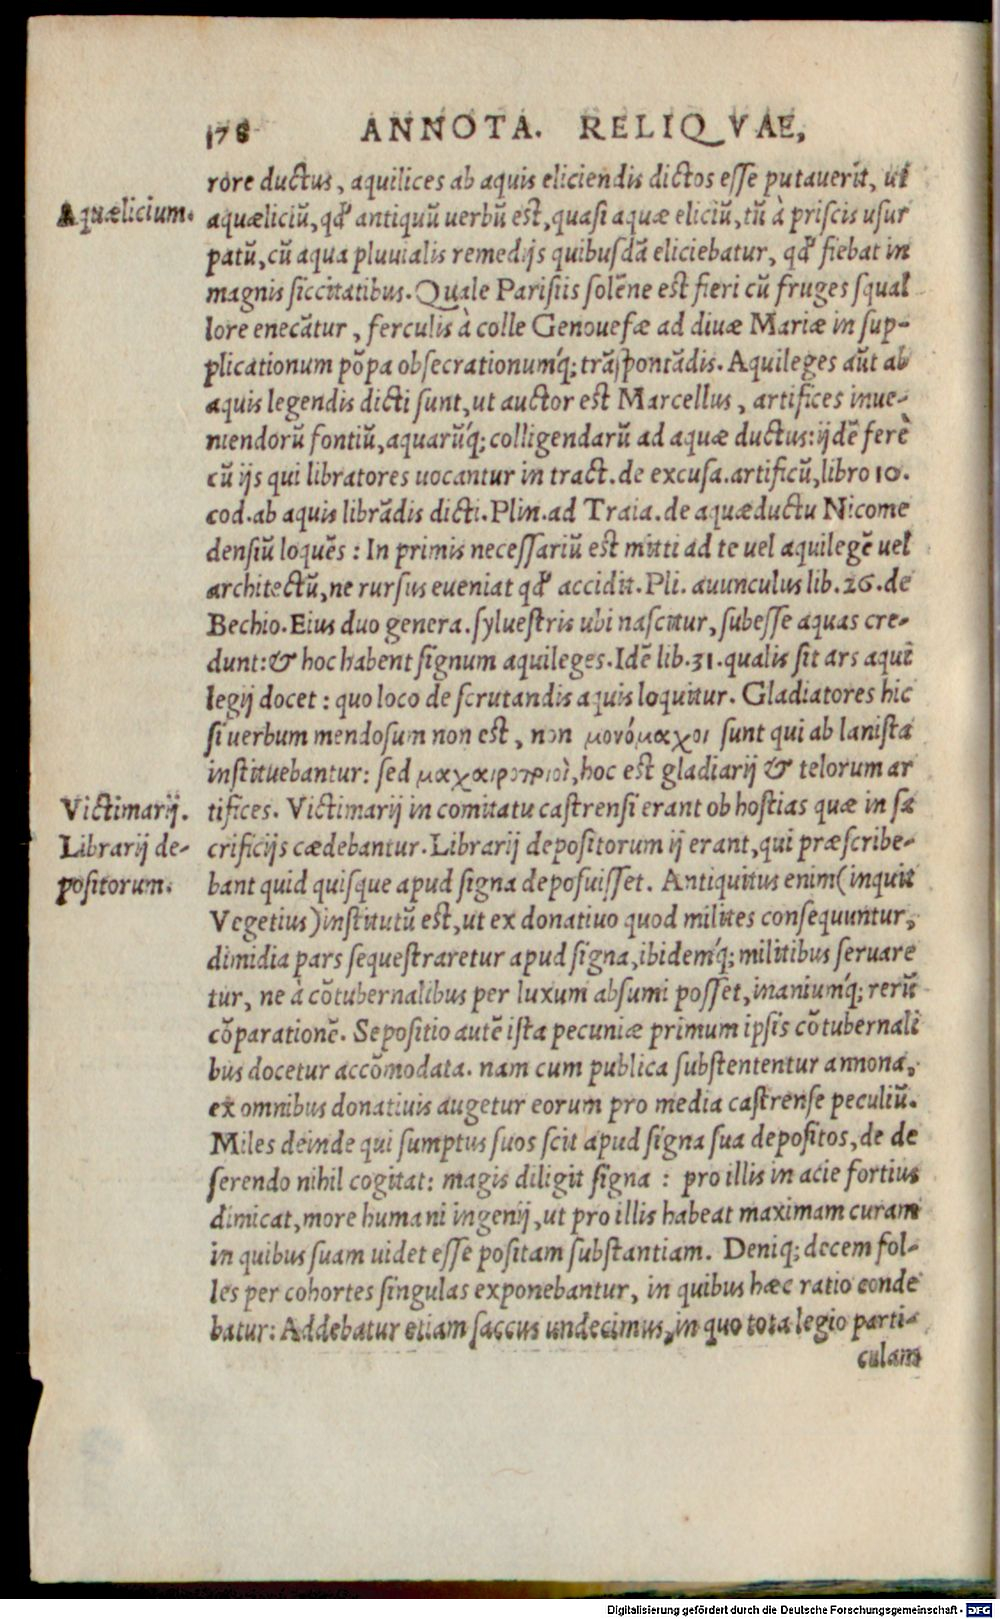 178 ANNOTA. RELIQVAE,
rore ductus, aquilices ab aquis eliciendis dictos esse putauerīt, ut
Aquælicium.
aquæliciū, qđ antiquū uerbū est, quasi aquæ eliciū, tū à priscis usur
patū, cū aqua pluuialis remedijs quibusdā eliciebatur, qđ fiebat in
magnis siccitatibus. Quale Parisiis solēne est fieri cū fruges squal
lore enecātur, ferculis à colle Genouefæ ad diuæ Mariæ in sup-
plicationum pōpa obsecrationumq́; trāsportādis. Aquileges aūt ab
aquis legendis dicti sunt, ut auctor est Marcellus, artifices inue-
niendorū fontiū, aquarūq́; colligendarū ad aquæ ductus: ijdē ferè
cū ijs qui libratores uocantur in tract. de excusa. artificū, libro 10.
cod. ab aquis librādis dicti. Plin. ad Traia. de aquæductu Nicome
densiū loquēs: In primis necessariū est mitti ad te uel aquilegē uel
architectū, ne rursus eueniat qđ accidit. Pli. auunculus lib. 26. de
Bechio. Eius duo genera. syluestris ubi nascitur, subesse aquas cre-
dunt: & hoc habent signum aquileges. Idē lib. 31. qualis sit ars aqui
legij docet: quo loco de scrutandis aquis loquitur. Gladiatores hic
si uerbum mendosum non est, non μονόμαχοι sunt qui ab lanista
instituebantur: sed μαχαιροποιοὶ, hoc est gladiarij & telorum ar
Victimarij.
tifices. Victimarij in comitatu castrensi erant ob hostias quæ in sa
Librarij de-
crificijs cædebantur. Librarij depositorum ij erant, qui præscribe-
positorum.
bant quid quisque apud signa deposuisset. Antiquitus enim (inquit
Vegetius) institutū est, ut ex donatiuo quod milites consequuntur,
dimidia pars sequestraretur apud signa, ibidemq́; militibus seruare
tur, ne à cōtubernalibus per luxum absumi posset, inaniumq́; rerū
cōparationē. Sepositio autē ista pecuniæ primum ipsis cōtubernali
bus docetur accōmodata. nam cum publica substententur annona,
ex omnibus donatiuis augetur eorum pro media castrense peculiū.
Miles deinde qui sumptus suos scit apud signa sua depositos, de de
serendo nihil cogitat: magis diligit signa: pro illis in acie fortius
dimicat, more humani ingenij, ut pro illis habeat maximam curam
in quibus suam uidet esse positam substantiam. Deniq; decem fol-
les per cohortes singulas exponebantur, in quibus hæc ratio conde
batur: Addebatur etiam saccus undecimus, in quo tota legio parti-
culam
Digitalisierung gefördert durch die Deutsche Forschungsgemeinschaft - DFG